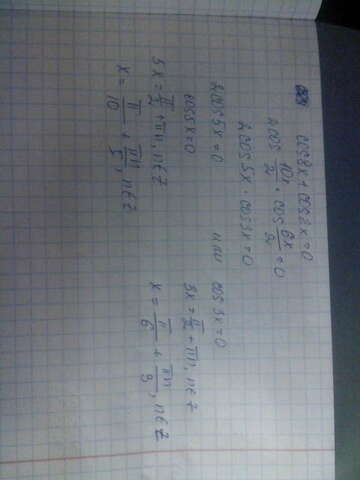 cos8x + cos2x = 0
2cos 10x/2 · cos 6x/2 = 0
2cos5x · cos3x = 0
2cos5x = 0 или cos3x = 0
cos5x = 0 3x = π/2 + πn, n∈Z
5x = π/2 + πn, n∈Z x = π/6 + πn/3, n∈Z
x = π/10 + πn/5, n∈Z